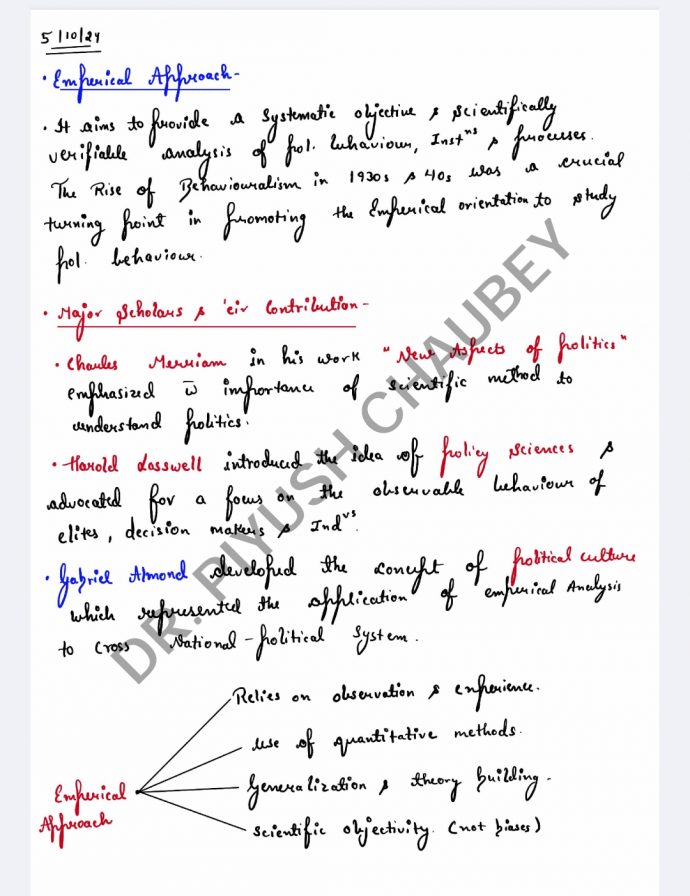 5/10/24
• Emperical Approach-
• It aims to provide a systematic objective & scientifically
verifiable analysis of pol. behaviour, Instⁿˢ & processes.
The Rise of Behaviouralism in 1930s & 40s was a crucial
turning point in promoting the Emperical orientation to study
pol. behaviour.
• Major Scholars & 'eir Contribution-
• Charles Merriam in his work "New Aspects of politics"
emphasized w̄ importance of scientific method to
understand politics.
• Harold Lasswell introduced the idea of policy sciences &
advocated for a focus on the observable behaviour of
elites, decision makers & Indᵛˢ.
• Gabriel Almond developed the concept of political culture
which represented the application of emperical Analysis
to Cross National-political System.
Relies on observation & experience.
use of quantitative methods.
Emperical
Approach
Generalization & theory building-
scientific objectivity. (not biases)
DR. PIYUSH CHAUBEY